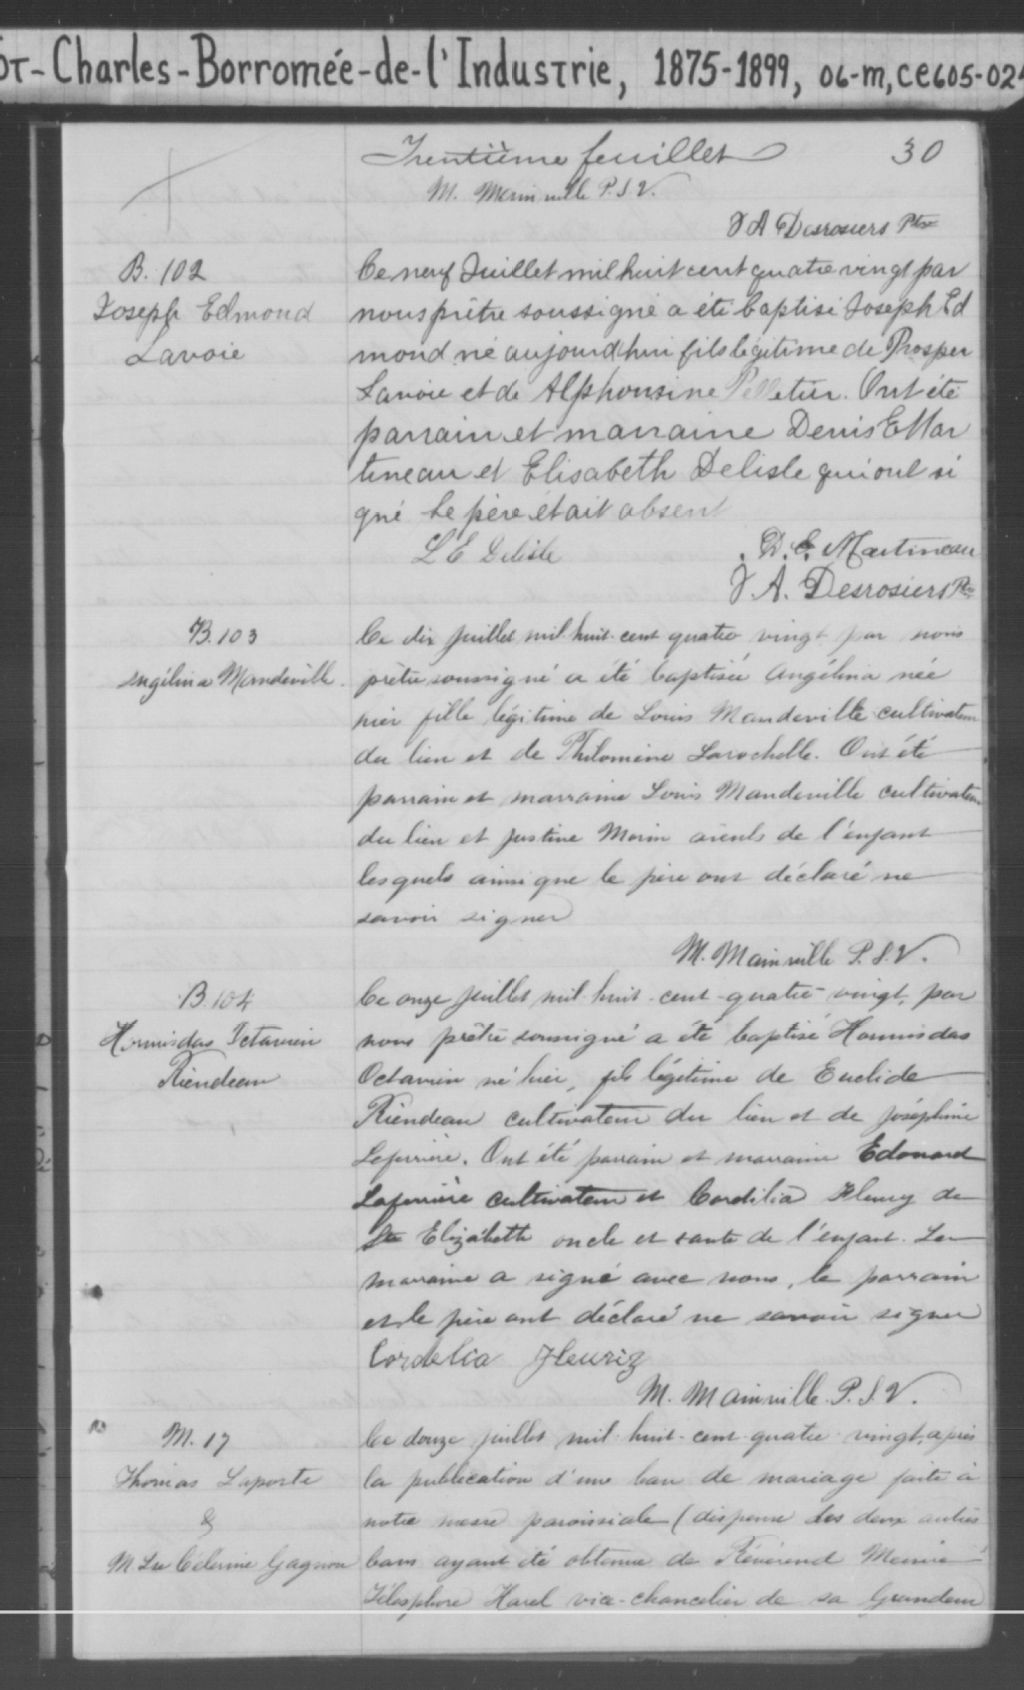 St-Charles-Borromée-de-l'Industrie, 1875-1899, 06-m, CE605-024
Trentième feuillet 30
M. Mainville P.S.V.
J A Desrosiers Ptre
B. 102
Joseph Edmond
Lavoie
Ce neuf Juillet mil huit cent quatre vingt par
nous prêtre soussigné a été baptisé Joseph Ed
mond né aujourd'hui fils légitime de Prosper
Lavoie et de Alphonsine Pelletier. Ont été
parrain et marraine Denis E Mar
tineau et Elisabeth Delisle qui ont si
gné Le père était absent
L E Delisle D. E. Martineau
J. A. Desrosiers Ptre
B. 103
Angélina Mandeville
Ce dix juillet mil huit cent quatre vingt par nous
prêtre soussigné a été baptisée Angélina née
hier fille légitime de Louis Mandeville cultivateur
du lieu et de Philomène Larochelle. Ont été
parrain et marraine Louis Mandeville cultivateur
du lieu et Justine Morin aieuls de l'enfant
lesquels ainsi que le père ont déclaré ne
savoir signer
M. Mainville P.S.V.
B. 104
Hormisdas Octavien
Riendeau
Ce onze juillet mil huit-cent-quatre-vingt, par
nous prêtre soussigné a été baptisé Hormisdas
Octavien né hier, fils légitime de Euclide
Riendeau cultivateur du lieu et de Joséphine
Leferrière. Ont été parrain et marraine Edouard
Laferrière cultivateur et Cordélia Fleury de
Ste Elizabeth oncle et tante de l'enfant. La
marraine a signé avec nous, le parrain
et le père ont déclaré ne savoir signer
Cordelia Fleuriz
M. Mainville P.S.V.
M. 17
Thomas Laporte
&
M. Lse Célerine Gagnon
Ce douze juillet mil huit-cent-quatre-vingt, après
la publication d'un ban de mariage faite à
notre messe paroissiale (dispense des deux autres
bans ayant été obtenue de Révérend Messire
Télesphore Harel vice-chancelier de sa Grandeur